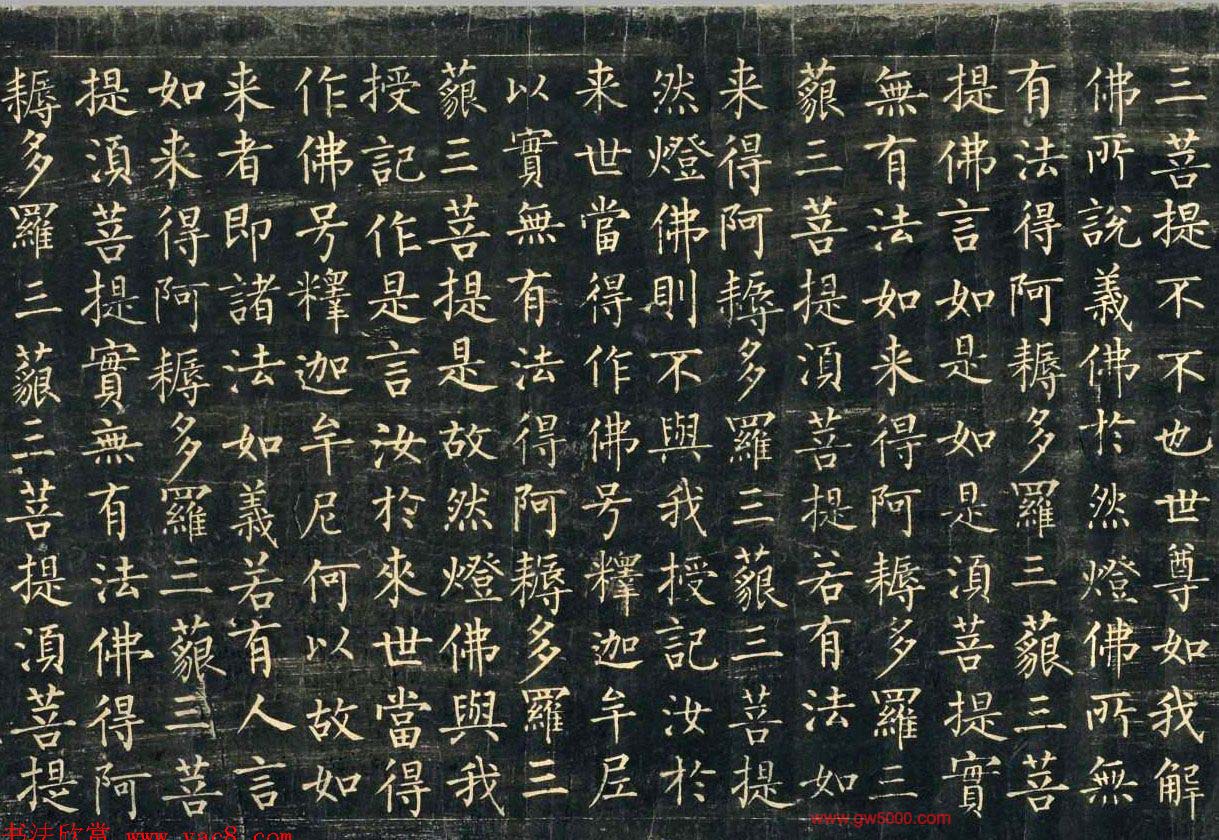 三菩提不不也世尊如我解
佛所說義佛於然燈佛所無
有法得阿耨多羅三藐三菩
提佛言如是如是須菩提實
無有法如来得阿耨多羅三
藐三菩提須菩提若有法如
来得阿耨多羅三藐三菩提
然燈佛則不與我授記汝於
来世當得作佛号釋迦牟尼
以實無有法得阿耨多羅三
藐三菩提是故然燈佛與我
授記作是言汝於來世當得
作佛号釋迦牟尼何以故如
来者即諸法如義若有人言
如来得阿耨多羅三藐三菩
提須菩提實無有法佛得阿
耨多羅三藐三菩提須菩提
书法欣赏 www.yac8.com
www.gw5000.com